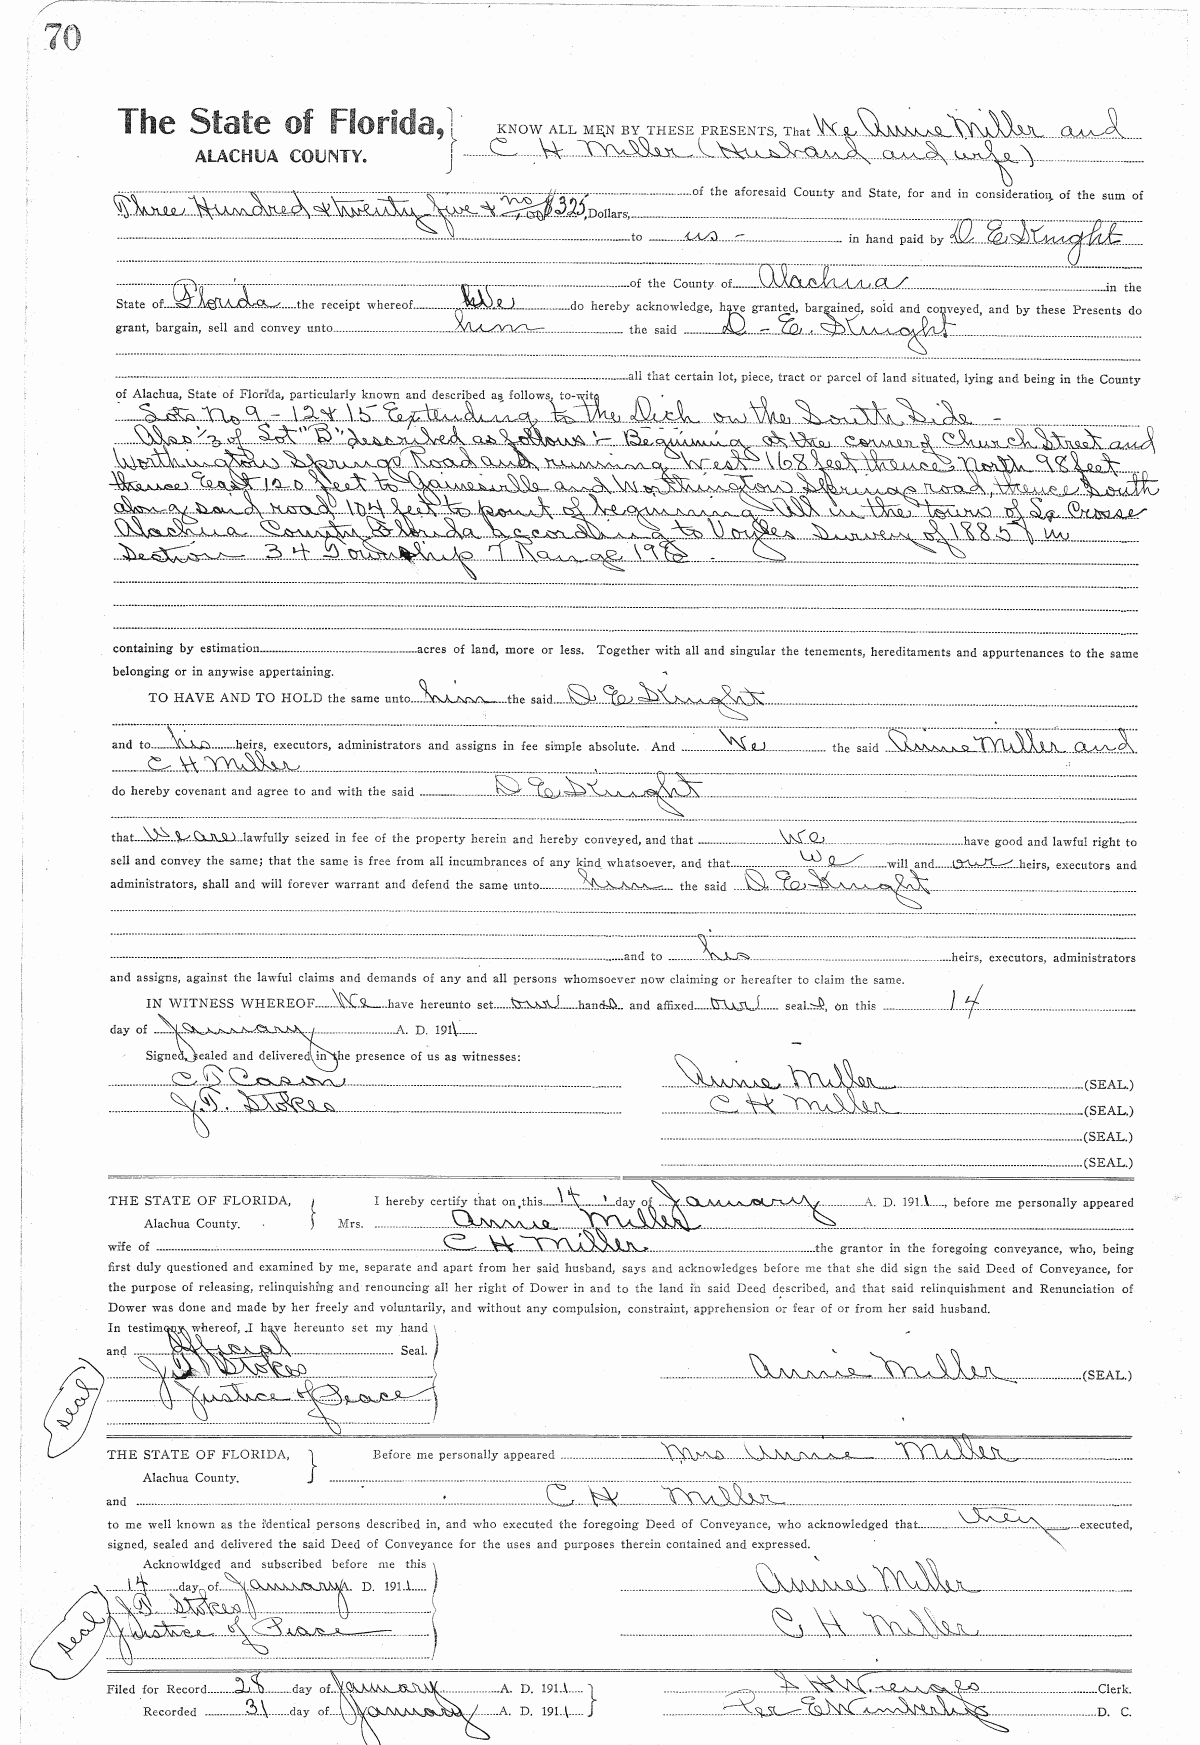 70
The State of Florida, KNOW ALL MEN BY THESE PRESENTS, That We Annie Miller and
ALACHUA COUNTY. C H Miller (Husband and wife)
of the aforesaid County and State, for and in consideration of the sum of
Three Hundred & twenty five & no/100 $325, Dollars,
to us - in hand paid by D. E Knight
of the County of Alachua in the
State of Florida the receipt whereof We do hereby acknowledge, have granted, bargained, sold and conveyed, and by these Presents do
grant, bargain, sell and convey unto him the said D - E. Knight
all that certain lot, piece, tract or parcel of land situated, lying and being in the County
of Alachua, State of Florida, particularly known and described as follows, to-wit:
Lots No 9 - 12 & 15 Extending to the Dich on the South Side -
Also 1/3 of Lot "B" described as follows:- Beginning at the corner of Church Street and
Worthington Springs Road and running West 168 feet thence North 98 feet
thence East 120 feet to Gainesville and Worthington Springs road, thence South
along said road 104 feet to point of beginning All in the town of La Crosse
Alachua County Florida according to Voyles Survey of 1885 in
Section 34 Township 7 Range 19
containing by estimation acres of land, more or less. Together with all and singular the tenements, hereditaments and appurtenances to the same
belonging or in anywise appertaining.
TO HAVE AND TO HOLD the same unto him the said D E Knight
and to his heirs, executors, administrators and assigns in fee simple absolute. And We the said Annie Miller and
C H Miller
do hereby covenant and agree to and with the said D E Knight
that We are lawfully seized in fee of the property herein and hereby conveyed, and that We have good and lawful right to
sell and convey the same; that the same is free from all incumbrances of any kind whatsoever, and that We will and our heirs, executors and
administrators, shall and will forever warrant and defend the same unto him the said D. E. Knight
and to his heirs, executors, administrators
and assigns, against the lawful claims and demands of any and all persons whomsoever now claiming or hereafter to claim the same.
IN WITNESS WHEREOF We have hereunto set our hands and affixed our seals, on this 14
day of January A. D. 1911
Signed, sealed and delivered in the presence of us as witnesses:
C T Cason Annie Miller (SEAL.)
J.T. Stokes C H Miller (SEAL.)
(SEAL.)
(SEAL.)
THE STATE OF FLORIDA, I hereby certify that on this 14 day of January A. D. 1911, before me personally appeared
Alachua County. Mrs. Annie Miller
wife of C H Miller the grantor in the foregoing conveyance, who, being
first duly questioned and examined by me, separate and apart from her said husband, says and acknowledges before me that she did sign the said Deed of Conveyance, for
the purpose of releasing, relinquishing and renouncing all her right of Dower in and to the land in said Deed described, and that said relinquishment and Renunciation of
Dower was done and made by her freely and voluntarily, and without any compulsion, constraint, apprehension or fear of or from her said husband.
In testimony whereof, I have hereunto set my hand
and Official Seal.
J.T. Stokes Annie Miller (SEAL.)
seal Justice of Peace
THE STATE OF FLORIDA, Before me personally appeared Mrs Annie Miller
Alachua County.
and C H Miller
to me well known as the identical persons described in, and who executed the foregoing Deed of Conveyance, who acknowledged that they executed,
signed, sealed and delivered the said Deed of Conveyance for the uses and purposes therein contained and expressed.
Acknowldged and subscribed before me this
14 day of January A. D. 1911 Annie Miller
J.T. Stokes
seal Justice of Peace C H Miller
Filed for Record 28 day of January A. D. 1911 Clerk.
Recorded 31 day of January A. D. 1911 Per E Wimberly D. C.